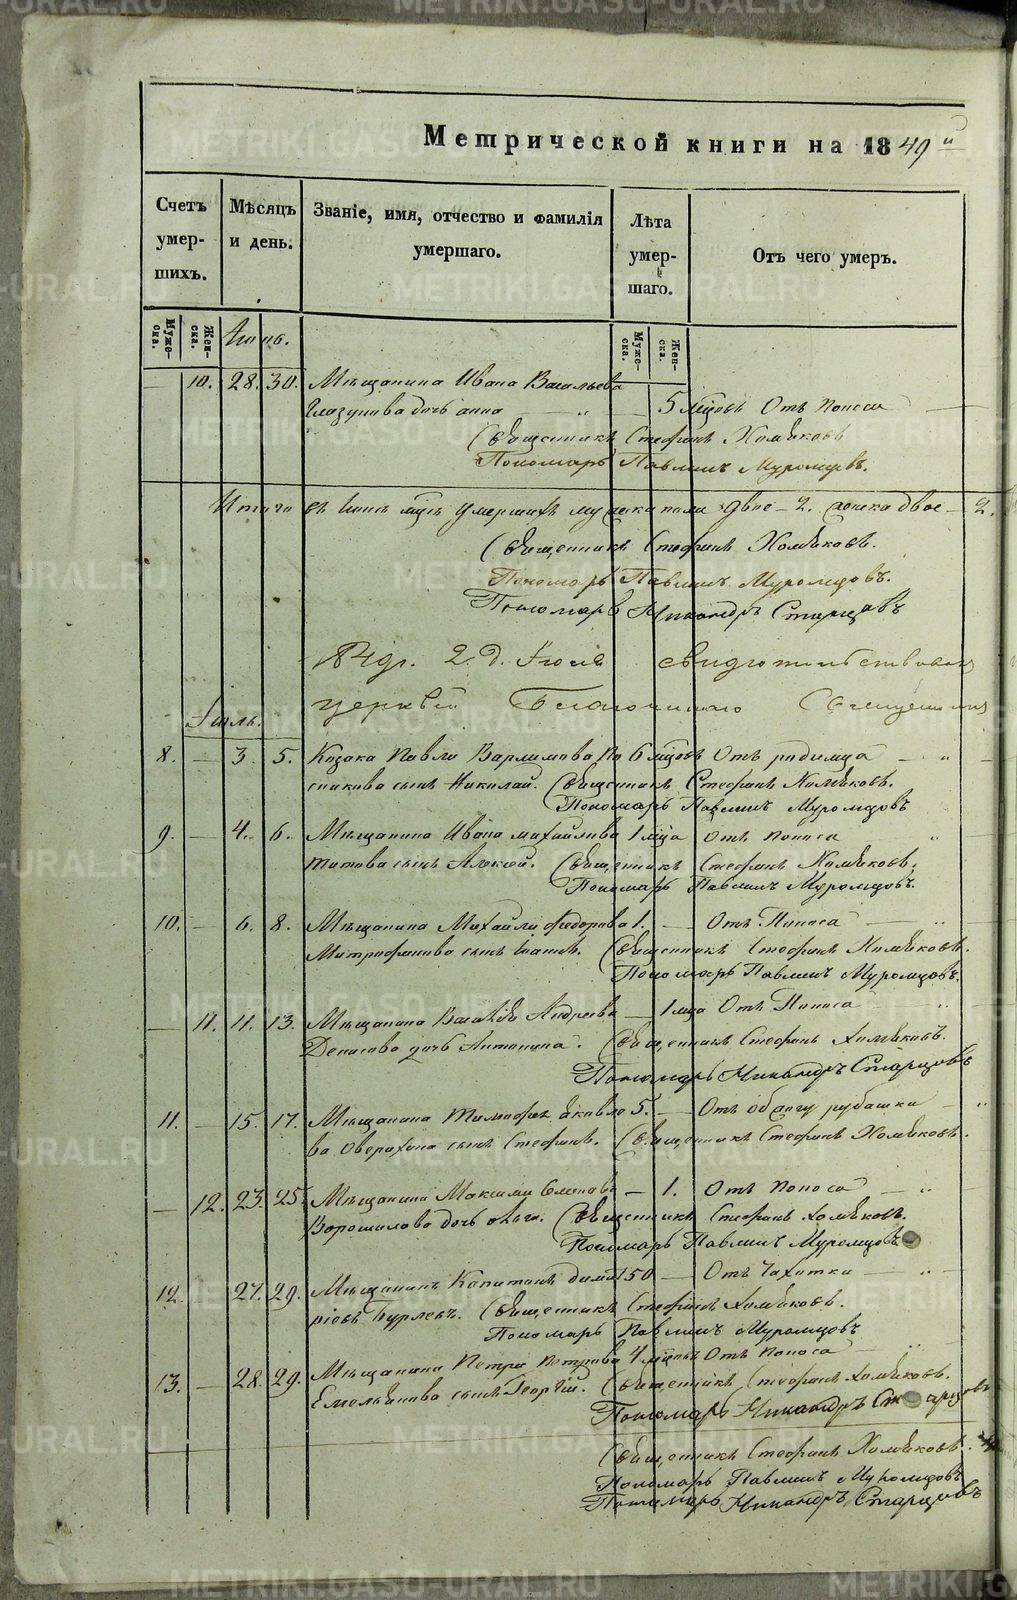 METRIKI.GASO-URAL.RU
Метрической книги на 1849 й
Счетъ умер-шихъ.
Мѣсяцъ и день.
Званіе, имя, отчество и фамилія умершаго.
Лѣта умер-шаго.
Отъ чего умеръ.
Муже-ска.
Жен-ска.
Іюнь.
Муже-ска.
Жен-ска.
10. 28. 30. Мѣщанина Ивана Васильева
Глазунова дочь Анна 5 мцовъ Отъ поноса
Священникъ Стефанъ Хомяковъ
Пономарь Павлинъ Муромцовъ.
Итого въ Іюнѣ умершихъ двое 2. двое 2.
Священникъ Стефанъ Хомяковъ.
Пономарь Павлинъ Муромцовъ.
Пономарь Никандръ Старцовъ
2 д. Іюля свидетельствовалъ
церквей Благочинной Священникъ
Іюль.
8. 3. 5. Казака Павла Варламова По 6 мцовъ Отъ родимца
сынъ Николай. Священникъ Стефанъ Хомяковъ.
Пономарь Павлинъ Муромцовъ
9. 4. 6. Мѣщанина Ивана Михайлова 1 мца Отъ поноса
Титова сынъ Алексей. Священникъ Стефанъ Хомяковъ.
Пономарь Павлинъ Муромцовъ.
10. 6. 8. Мѣщанина Михайла Федорова 1. Отъ Поноса
Митрофанова сынъ Священникъ Стефанъ Хомяковъ.
Пономарь Павлинъ Муромцовъ.
11. 11. 13. Мѣщанина Василья Андреева 1 мца Отъ Поноса
Денисова дочь Антонина. Священникъ Стефанъ Хомяковъ.
Пономарь Никандръ Старцовъ
11. 15. 17. Мѣщанина Тимофея Яковле 5. Отъ рубашки
ва сынъ Стефанъ. Священникъ Стефанъ Хомяковъ.
12. 23. 25. Мѣщанина Максима Семенова 1. Отъ поноса
Ворошилова дочь Священникъ Стефанъ Хомяковъ.
Пономарь Павлинъ Муромцовъ
12. 27. 29. Мѣщанинъ Капитонъ Димит 50 Отъ Чахотки
ріевъ Бурлевъ. Священникъ Стефанъ Хомяковъ.
Пономарь Павлинъ Муромцовъ
13. 28. 29. Мѣщанина Петра Петрова 4 мцовъ Отъ поноса
Емельянова сынъ Георгій. Священникъ Стефанъ Хомяковъ.
Пономарь Никандръ Старцовъ
Священникъ Стефанъ Хомяковъ.
Пономарь Павлинъ Муромцовъ
Пономарь Никандръ Старцовъ